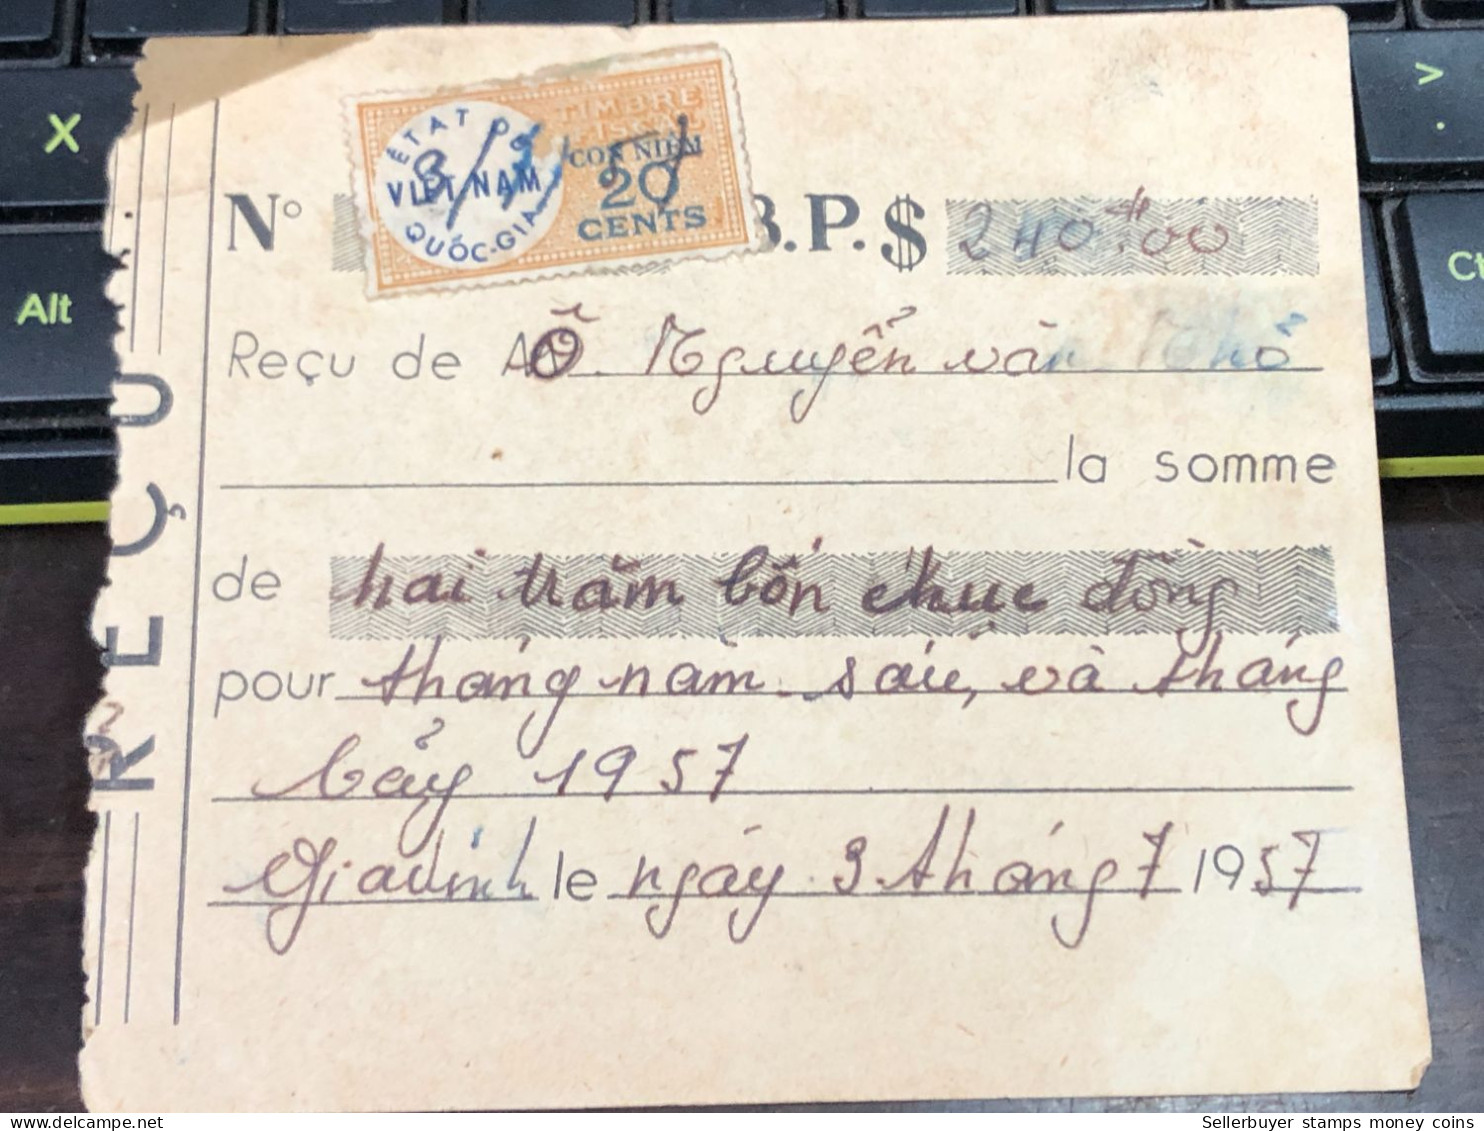 X
Alt
>
.
Ct
REÇU
ÉTAT DE
VIET NAM
QUỐC-GIA
TIMBRE
FISCAL
CON NIÊM
20
CENTS
8/7/57
N° B.P.$ 240đ.00
Reçu de Ô. Nguyễn văn
la somme
de hai trăm bốn chục đồng
pour tháng năm. sáu, và tháng
bảy 1957
Giađịnh le ngày 3 tháng 7 1957
Sellerbuyer stamps money coins